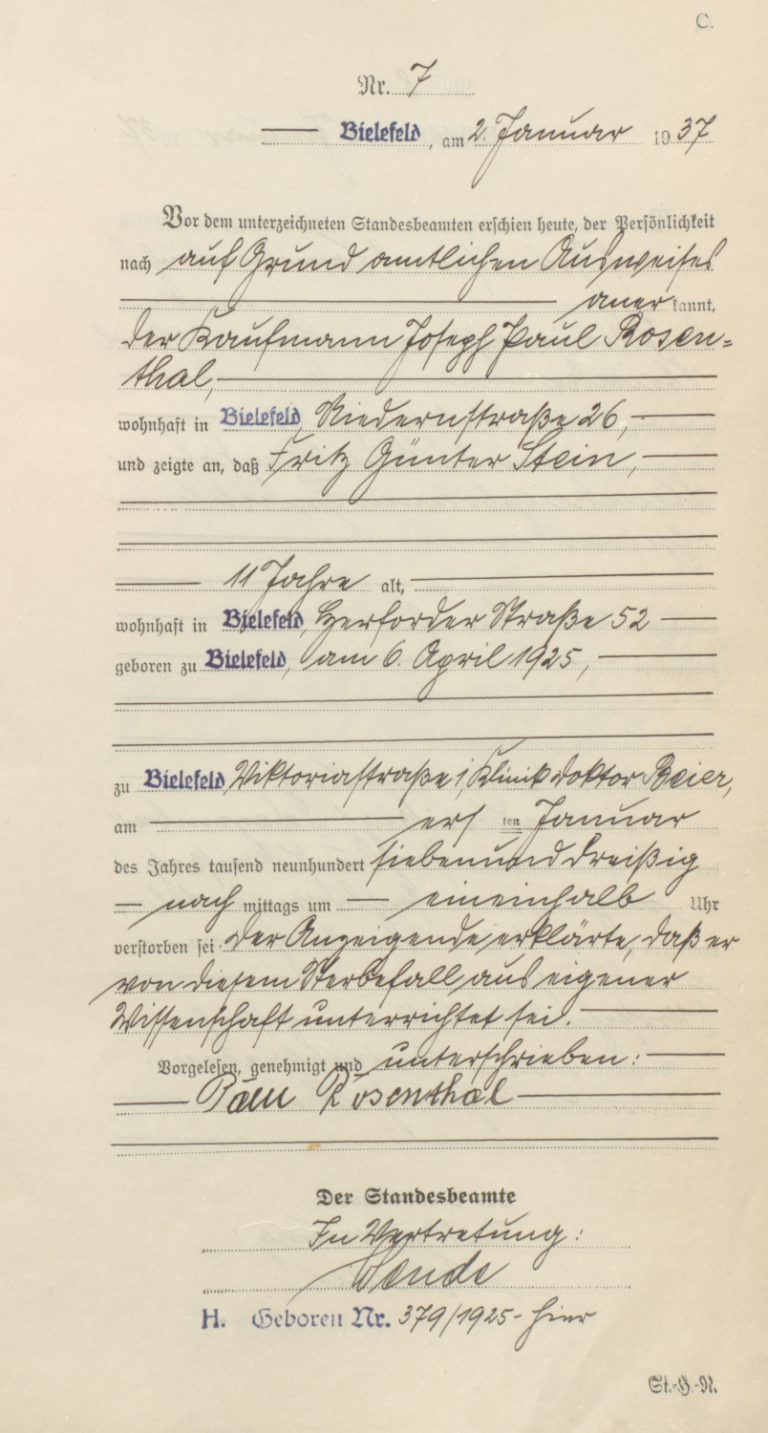 C.
Nr. 7
Bielefeld, am 2. Januar 1937
Vor dem unterzeichneten Standesbeamten erschien heute, der Persönlichkeit
nach auf Grund amtlichen Ausweises
anerkannt,
der Kaufmann Joseph Paul Rosen=
thal,
wohnhaft in Bielefeld, Niedernstraße 26,
und zeigte an, daß Fritz Günter Stein,
11 Jahre alt,
wohnhaft in Bielefeld, Herforder Straße 52
geboren zu Bielefeld, am 6. April 1925,
zu Bielefeld, Viktoriastraße, Klinik doktor Beier,
am ersten Januar
des Jahres tausend neunhundert siebenunddreißig
nachmittags um eineinhalb Uhr
verstorben sei. Der Anzeigende erklärte, daß er
von diesem Sterbefall aus eigener
Wissenschaft unterrichtet sei.
Vorgelesen, genehmigt und unterschrieben:
Paul Rosenthal
Der Standesbeamte
In Vertretung:
H. Geboren Nr. 379/1925 - hier
St.-H.-N.